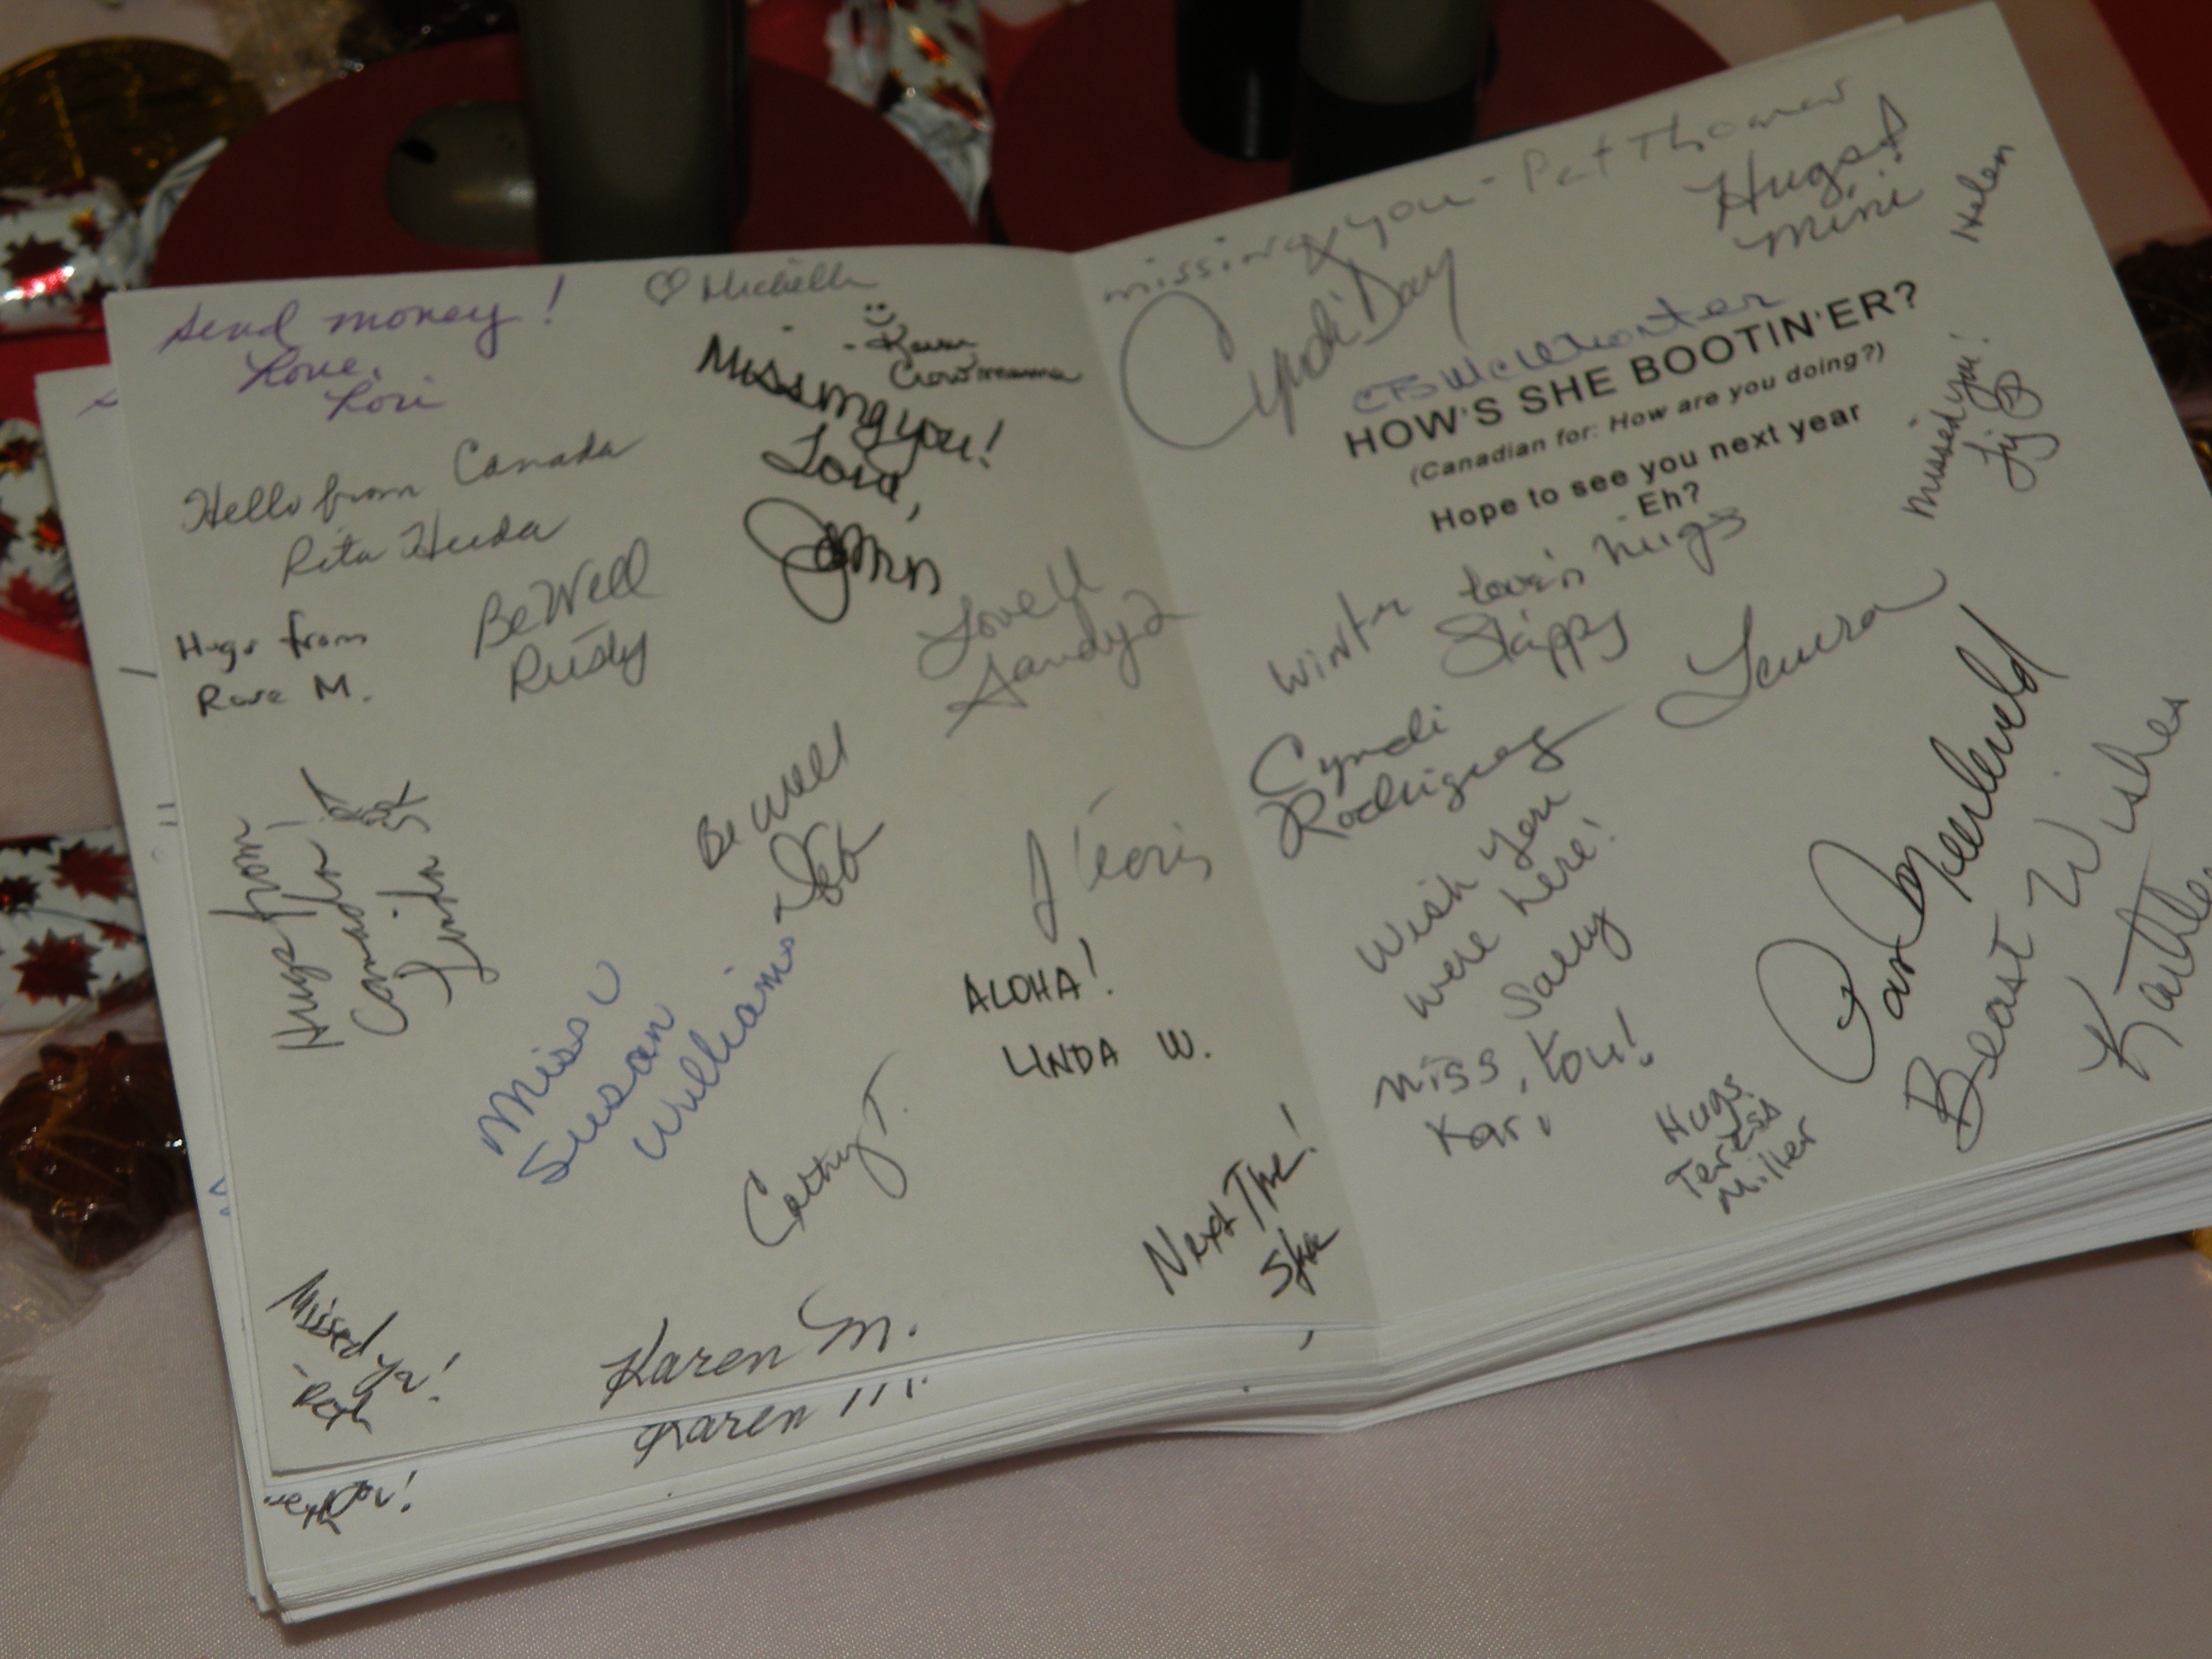 Send money!
Love,
Lori
♡ Michelle
Karen
Crowmama
Missing you!
Love,
Hello from Canada
Rita
Hugs from
Rose M.
Be Well
Rusty
Love U
Sandy
Hugs from
Canada!
Linda
Be Well
Deb
Miss U
Susan
Williams
ALOHA!
LINDA W.
Cathy T.
Next Time!
Missed ya!
Karen M.
Karen M.
missing you - Pat Thomas
Hugs!
mimi
Helen
Cyndi Day
McWhorter
HOW'S SHE BOOTIN'ER?
(Canadian for: How are you doing?)
Hope to see you next year
- Eh?
Missed you!
Winter love'n hugs
Skippy
Laura
Cyndi
Rodriguez
Wish you
were here!
Sally
Miss You!
Kari
Hugs
Teresa
Miller
Pam
Beast Wishes